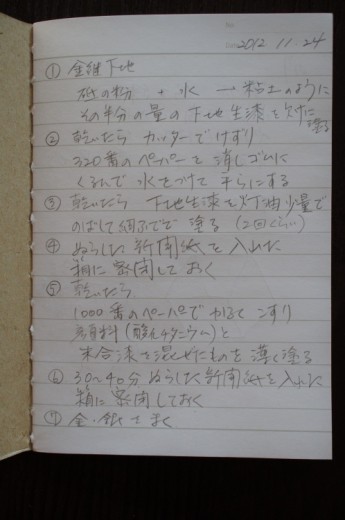 2012 11.24
① 金継下地
砥の粉 + 水 → 粘土のように
その半分の量の下地生漆を欠けに
塗る
② 乾いたら カッターでけずり
320番のペーパーを消しゴムに
くるんで 水をつけて 平らにする
③ 乾いたら 下地生漆を灯油少量で
のばして細ふでで 塗る (2回くらい)
④ ぬらした新聞紙を入れた
箱に密閉しておく
⑤ 乾いたら
1000番のペーパーでかるく こすり
顔料(酸化チタニウム)と
朱合漆を混ぜたものを薄く塗る
⑥ 30~40分 ぬらした新聞紙を入れた
箱に密閉しておく
⑦ 金・銀をまく